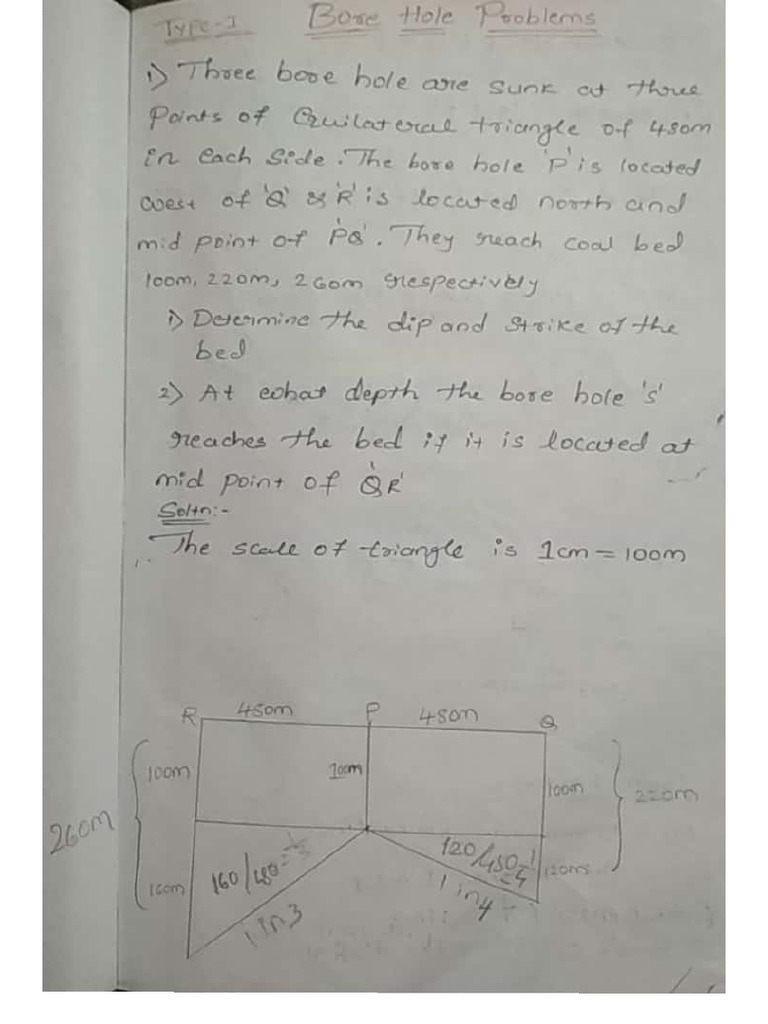 Type-I Bore Hole Problems
1) Three bore hole are sunk at three
Points of Equilateral triangle of 480m
in each side. The bore hole 'P' is located
west of 'Q' & 'R' is located north and
mid point of 'PQ'. They reach coal bed
100m, 220m, 260m respectively
1) Determine the dip and strike of the
bed
2) At what depth the bore hole 's'
reaches the bed if it is located at
mid point of 'QR'
Soltn:-
The scale of triangle is 1cm = 100m
R 480m P 480m Q
100m 100m 100m
260m 220m
160m 160/480=1/3 120/480=1/4 120m
1 in 3 1 in 4